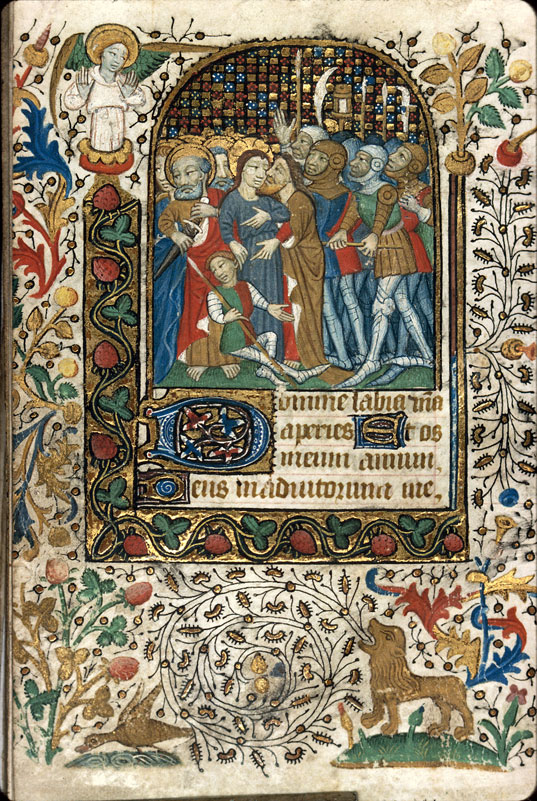 Domine labia mea
aperies Et os
meum annun
Deus in adiutorium me